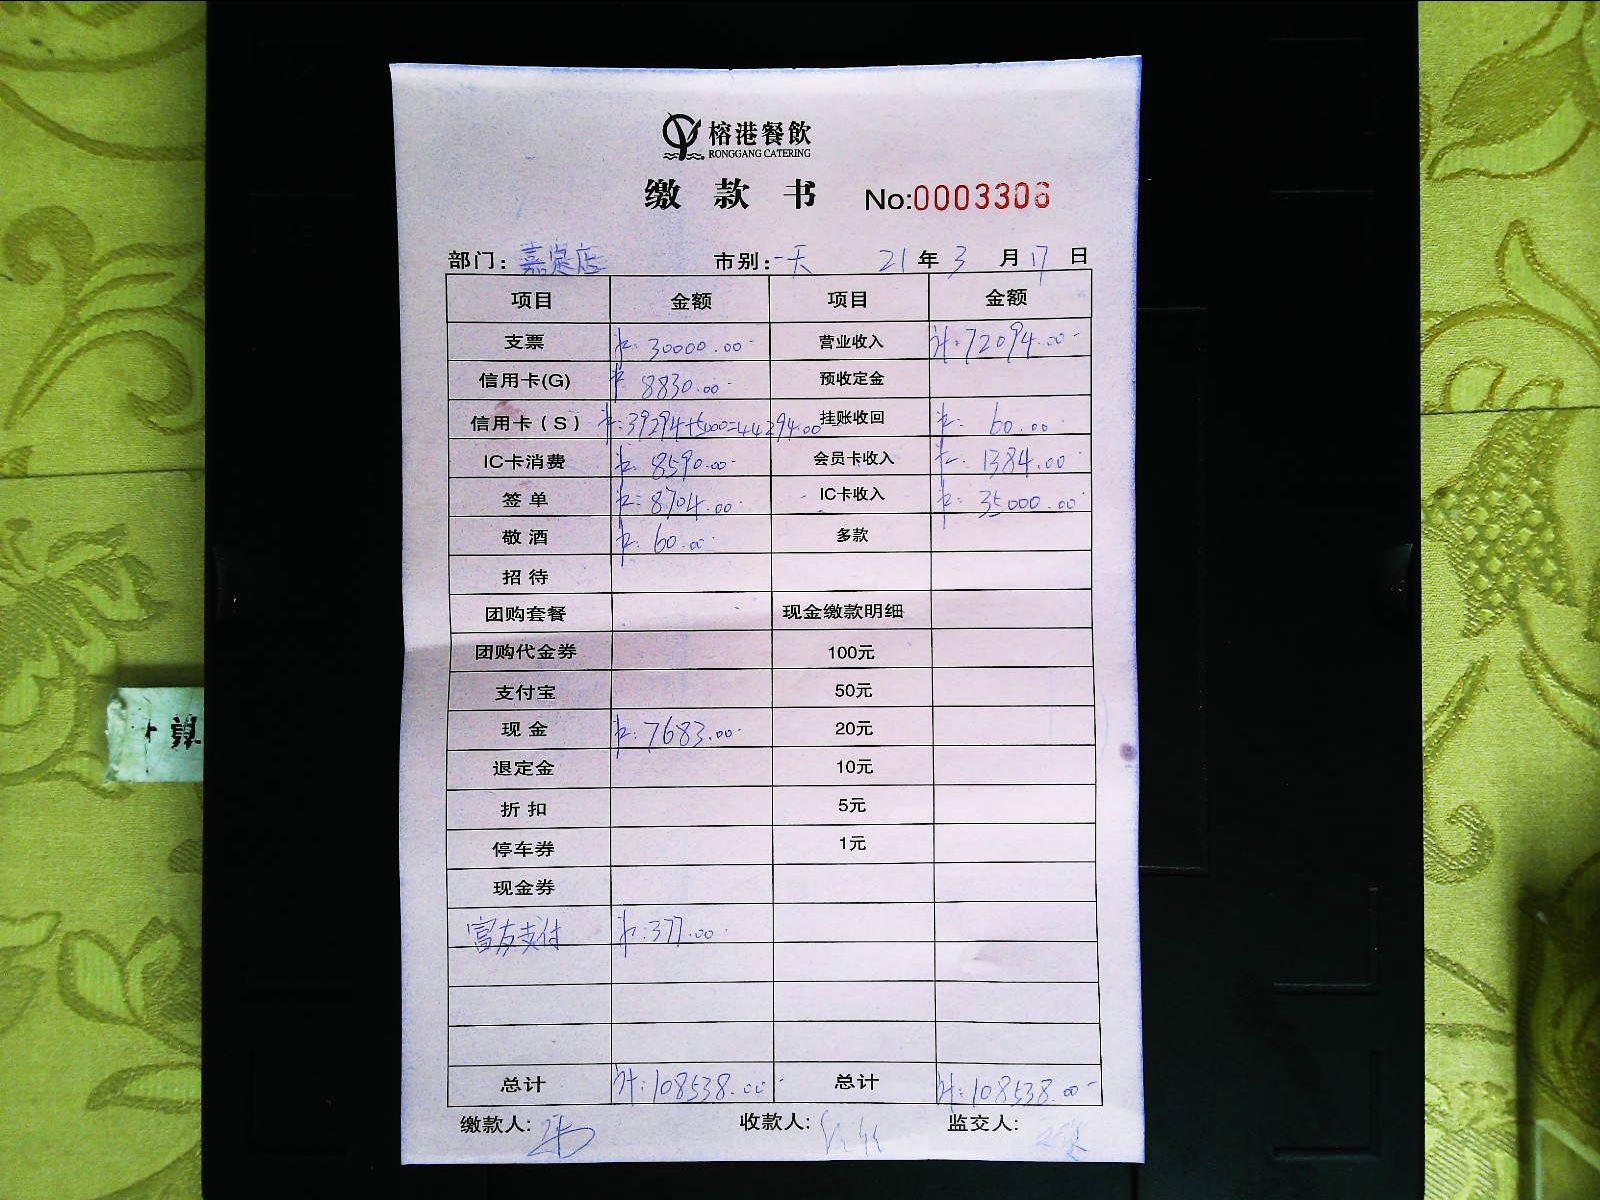 榕港餐飲
RONGGANG CATERING
缴款书 No:0003306
部门:嘉定店 市别:一天 21年3月17日
项目 金额 项目 金额
支票 30000.00 营业收入 计:72094.00
信用卡(G) 8830.00 预收定金
信用卡(S) 39294+5000=44294.00 挂账收回 60.00
IC卡消费 8590.00 会员卡收入 1384.00
签单 8704.00 IC卡收入 35000.00
敬酒 60.00 多款
招待
团购套餐 现金缴款明细
团购代金券 100元
支付宝 50元
现金 7683.00 20元
退定金 10元
折扣 5元
停车券 1元
现金券
富友支付 377.00
总计 计:108538.00 总计 计:108538.00
缴款人: 收款人: 监交人: